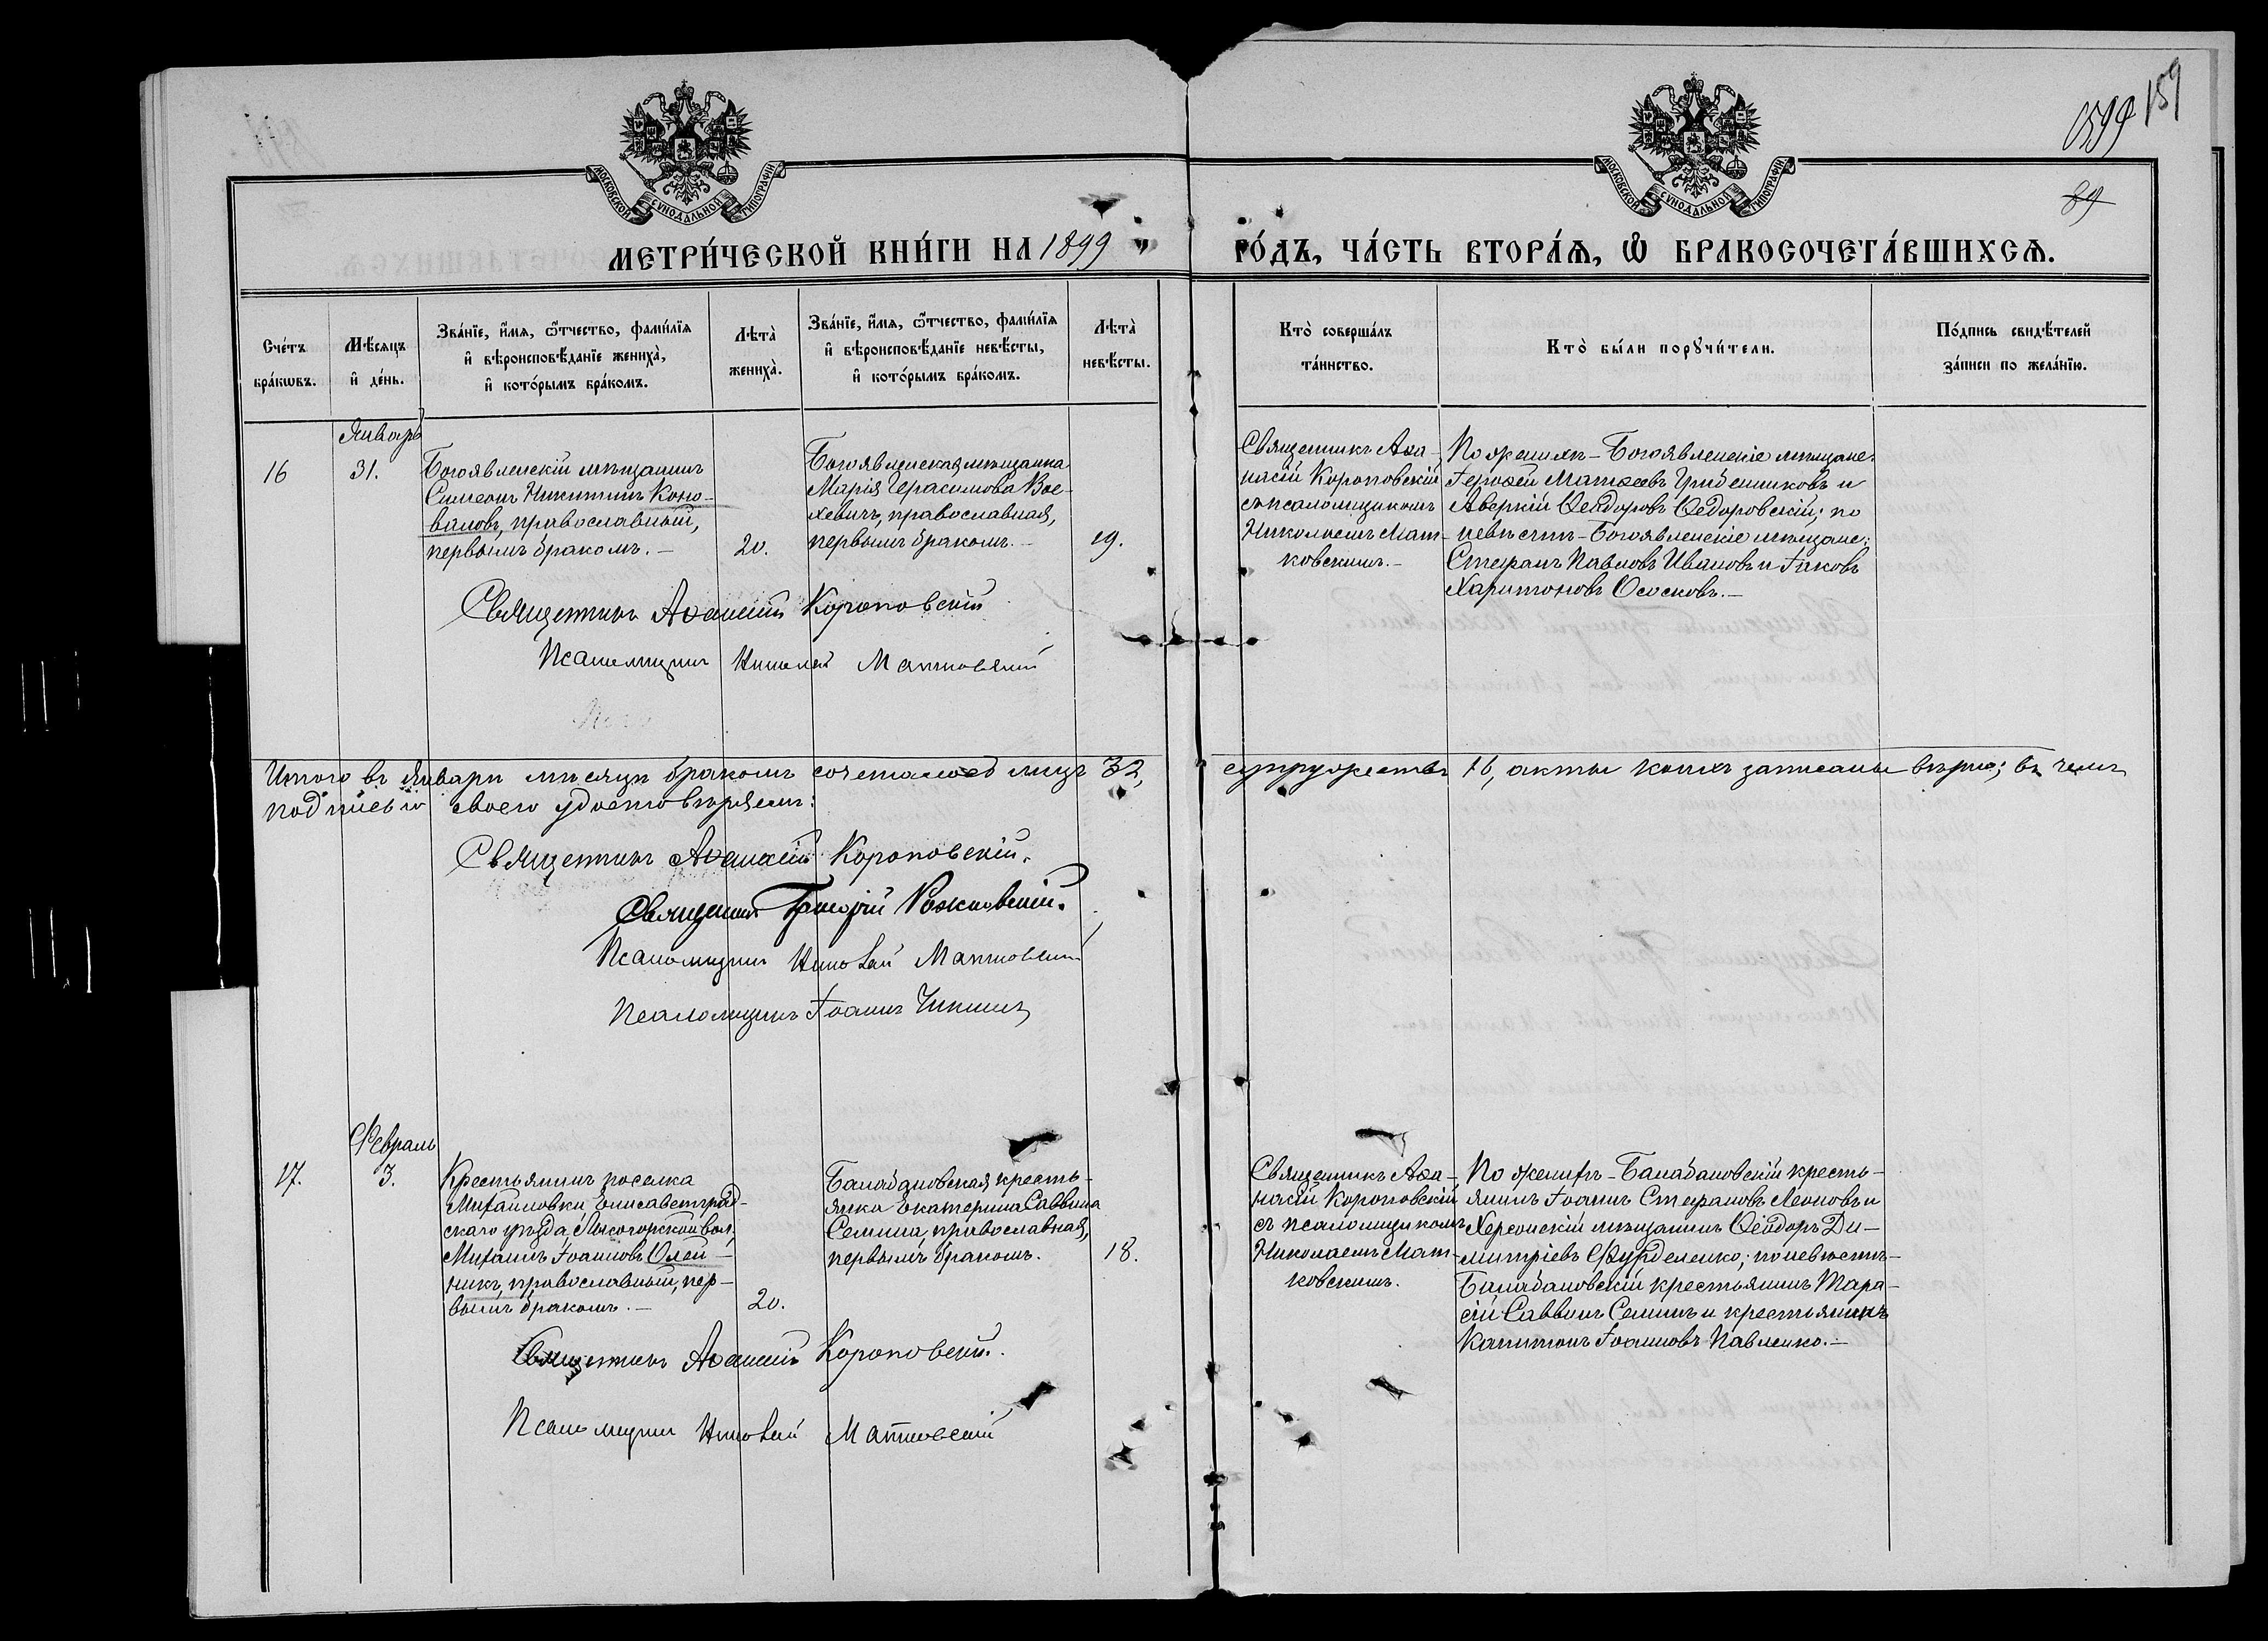 1599 159
89
МОСКОВСКОЙ СѴНОДАЛЬНОЙ ТИПОГРАФІИ
МОСКОВСКОЙ СѴНОДАЛЬНОЙ ТИПОГРАФІИ
МЕТРИ́ЧЕСКОЙ КНИ́ГИ НА 1899
ГО́ДЪ, ЧА́СТЬ ВТОРА́Ѧ, Ѽ БРАКОСОЧЕТА́ВШИХСѦ.
Сче́тъ бра́кѡвъ.
Мѣ́сѧцъ и҆ де́нь.
Зва́нїе, и҆́мѧ, ѻ҆́тчество, фами́лїѧ
и҆ вѣроисповѣ́данїе жениха̀,
и҆ кото́рымъ бра́комъ.
Лѣта̀ жениха̀.
Зва́нїе, и҆́мѧ, ѻ҆́тчество, фами́лїѧ
и҆ вѣроисповѣ́данїе невѣ́сты,
и҆ кото́рымъ бра́комъ.
Лѣта̀ невѣ́сты.
Кто̀ соверша́лъ та́инство.
Кто̀ бы́ли порꙋчи́тели.
По́дпись свидѣ́телей
за́писи по жела́нїю.
Январь
16
31.
Богоявленскій мѣщанинъ
Симеонъ Никитинъ Коно-
валовъ, православный,
первымъ бракомъ.—
20.
Богоявленская мѣщанка
Марія Герасимова Вое-
хевичъ, православная,
первымъ бракомъ.—
19.
Священникъ Аѳа-
насій Короповскій
съ псаломщикомъ
Николаемъ Мат-
ковскимъ.—
По женихѣ—Богоявленскіе мѣщане:
Іероѳей Матѳеевъ Грибенниковъ и
Аверкій Ѳеодоровъ Ѳедоровскій; по
невѣстѣ—Богоявленскіе мѣщане:
Стефанъ Павловъ Ивановъ и Іаковъ
Харитоновъ Ососковъ.—
Священникъ Аѳанасій Короповскій
Псаломщикъ Николай Матковскій
Итого въ Январѣ мѣсяцѣ бракомъ сочеталось лицъ 32, супружествъ 16, акты коихъ записаны вѣрно; въ чемъ
подписью своею удостовѣряемъ:
Священникъ Аѳанасій Короповскій.
Священникъ Григорій Рожковскій.
Псаломщикъ Николай Матковскій
Псаломщикъ Іоаннъ Чикинъ
Февраль
17.
3.
Крестьянинъ поселка
Михайловки, Елисаветград-
скаго уѣзда, Лысогорской вол.,
Михаилъ Іоанновъ Олей-
никъ, православный, пер-
вымъ бракомъ.—
20.
Балабановская кресть-
янка Екатерина Саввина
Семина, православная,
первымъ бракомъ.
18.
Священникъ Аѳа-
насій Короповскій
съ псаломщикомъ
Николаемъ Мат-
ковскимъ.
По женихѣ—Балабановскій кресть-
янинъ Іоаннъ Стефановъ Леоновъ и
Херсонскій мѣщанинъ Ѳеодоръ Ди-
митріевъ Фурделенко; по невѣстѣ—
Балабановскій крестьянинъ Тара-
сій Саввинъ Семинъ и крестьянинъ
Капитонъ Іоанновъ Павленко.—
Священникъ Аѳанасій Короповскій.
Псаломщикъ Николай Матковскій